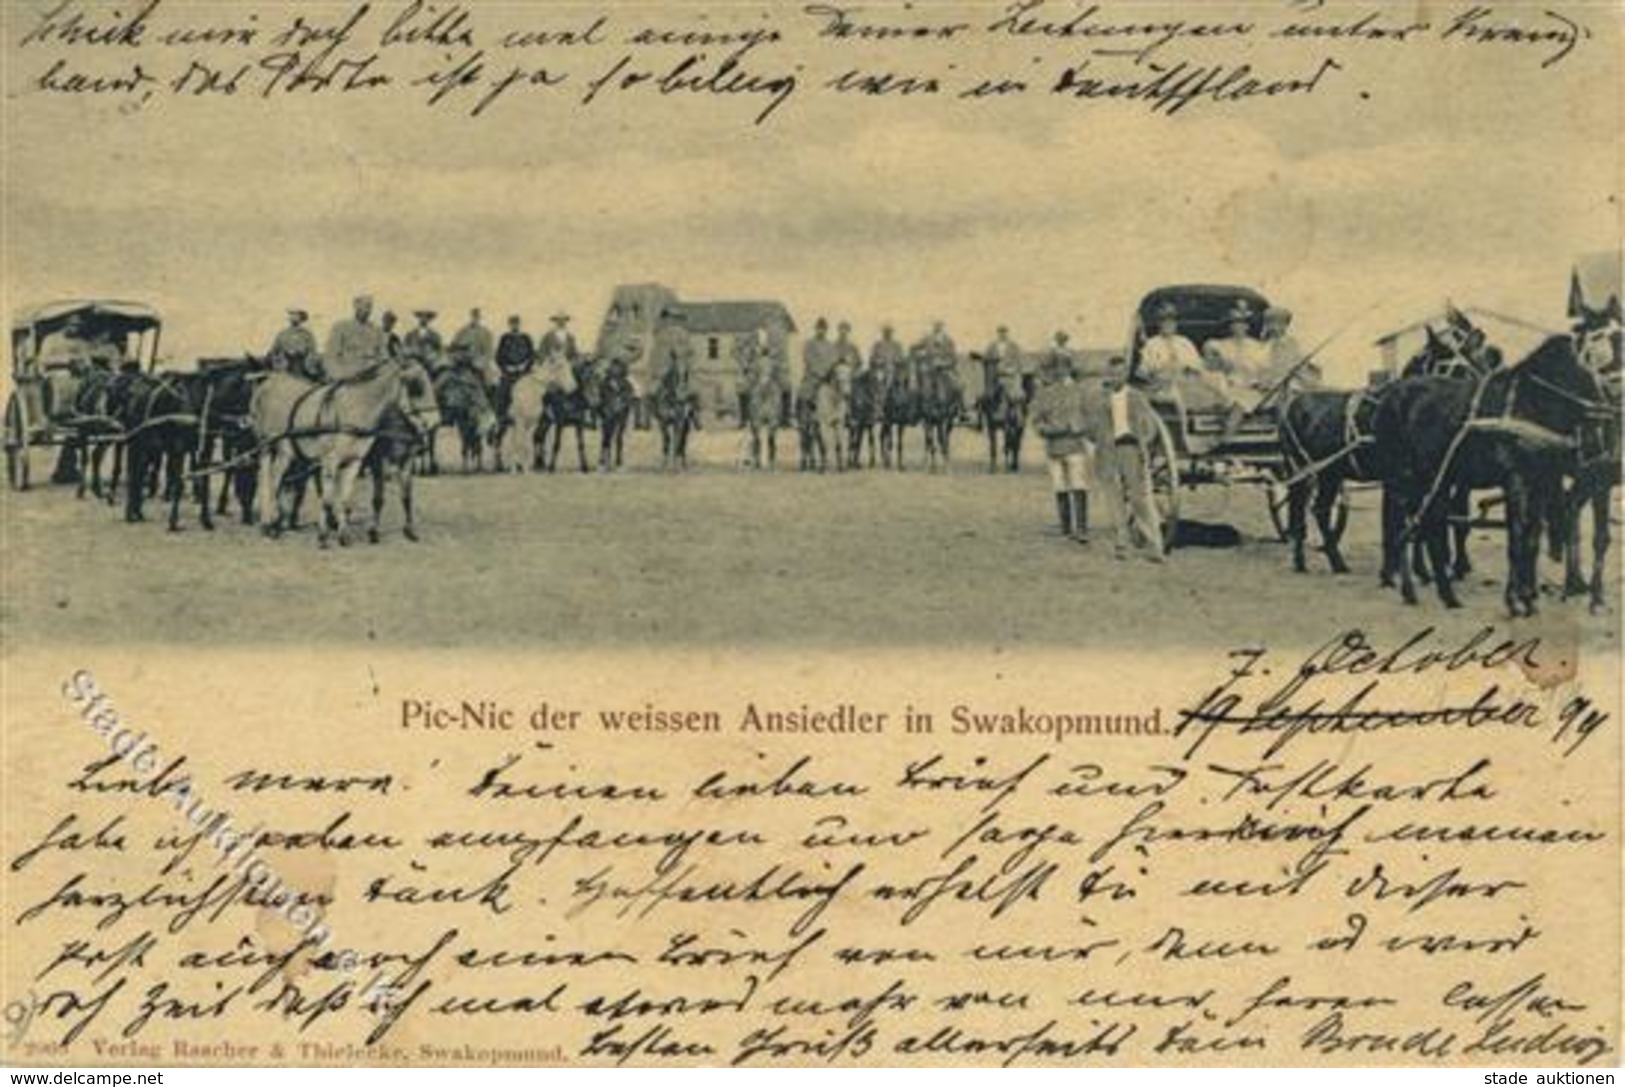 Schick mir doch bitte mal einige Deiner Zeitungen unter Kreuz-
band, das Porto ist ja so billig wie in Deutschland.
7. October.
Pic-Nic der weissen Ansiedler in Swakopmund. 19 September 99
Liebe! Deinen lieben Brief und Postkarte
habe ich soeben empfangen und sage hierdurch meinen
herzlichsten Dank. Hoffentlich erhelst Du mit dieser
Post auch noch einen Brief von mir, denn es wird
doch Zeit daß ich mal etwas mehr von mir hören lasse
2963 Verlag Raacher & Thielecke, Swakopmund. Besten Gruß allerseits Dein Bruder Ludwig
stade auktionen
www.delcampe.net stade auktionen